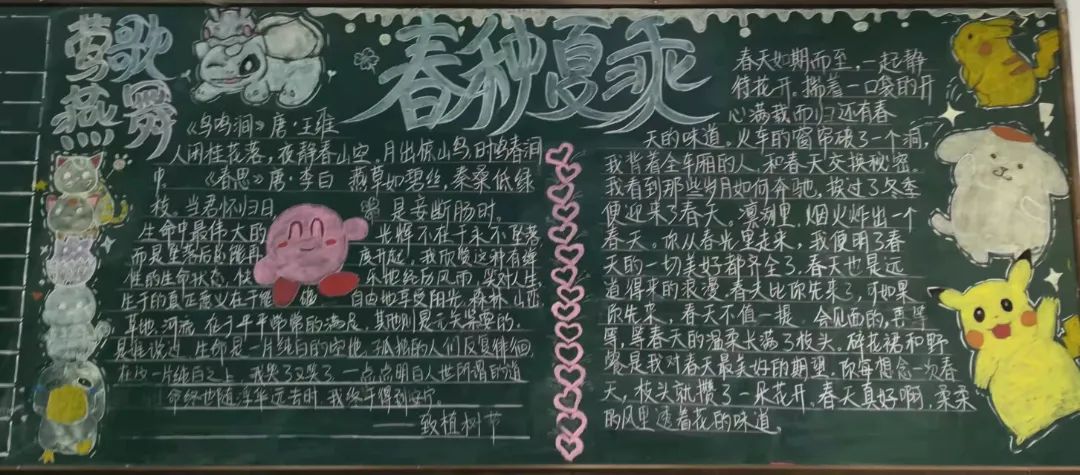 莺歌
燕舞
春种夏乘
《鸟鸣涧》唐·王维
人闲桂花落，夜静春山空。月出惊山鸟，时鸣春涧
中。《春思》唐·李白 燕草如碧丝，秦桑低绿
枝。当君怀归日 是妾断肠时。
生命中最伟大的 光辉不在于永不坠落
而是坠落后总能再 度升起。我欣赏这种有弹
性的生命状态，快 乐地经历风雨，笑对人生
生于的真正意义在于能 自由地享受阳光，森林，山峦，
草地，河流，在于平平常常的满足。其他则是无关紧要的。
是谁说过，生命是一片纯白的空地，孤独的人们反复徘徊，
在这一片纯白之上，我哭了又笑了，一点点明白人世所谓的道
命终也随浮华远去时，我终于得到好疗。
——致植树节
春天如期而至，一起静
待花开。揣着一口袋的开
心满载而归还有春
天的味道。火车的窗帘破了一个洞，
我背着全车厢的人，和春天交换秘密。
我看到那些岁月如何奔驰，挨过了冬季
便迎来了春天。凛冽里，烟火炸出一个
春天。你从春光里走来，我便明了春
天的一切美好都齐全了。春天也是远
道得来的浪漫。春天比你先来了，可如果
你先来，春天不值一提。会见面的，再等
等，等春天的温柔长满了枝头，碎花裙和野
餐是我对春天最美好的期望。你每想念一次春
天，枝头就攒了一朵花开。春天真好啊，柔柔
的风里透着花的味道。